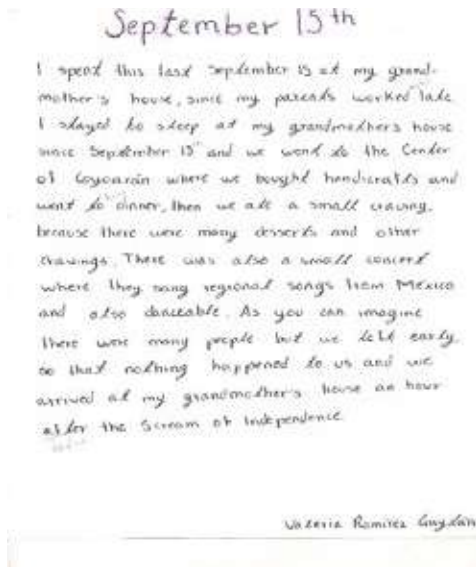 September 15th
I spent this last September 15 at my grand-
mother's house, since my parents worked late
I stayed to sleep at my grandmother's house
since September 15 and we went to the Center
of Coyoacán where we bought handicrafts and
went to dinner, then we ate a small craving,
because there were many desserts and other
cravings. There was also a small concert
where they sang regional songs from Mexico
and also danceable. As you can imagine
there were many people but we left early,
so that nothing happened to us and we
arrived at my grandmother's house an hour
after the Scream of Independence
Valeria Ramirez